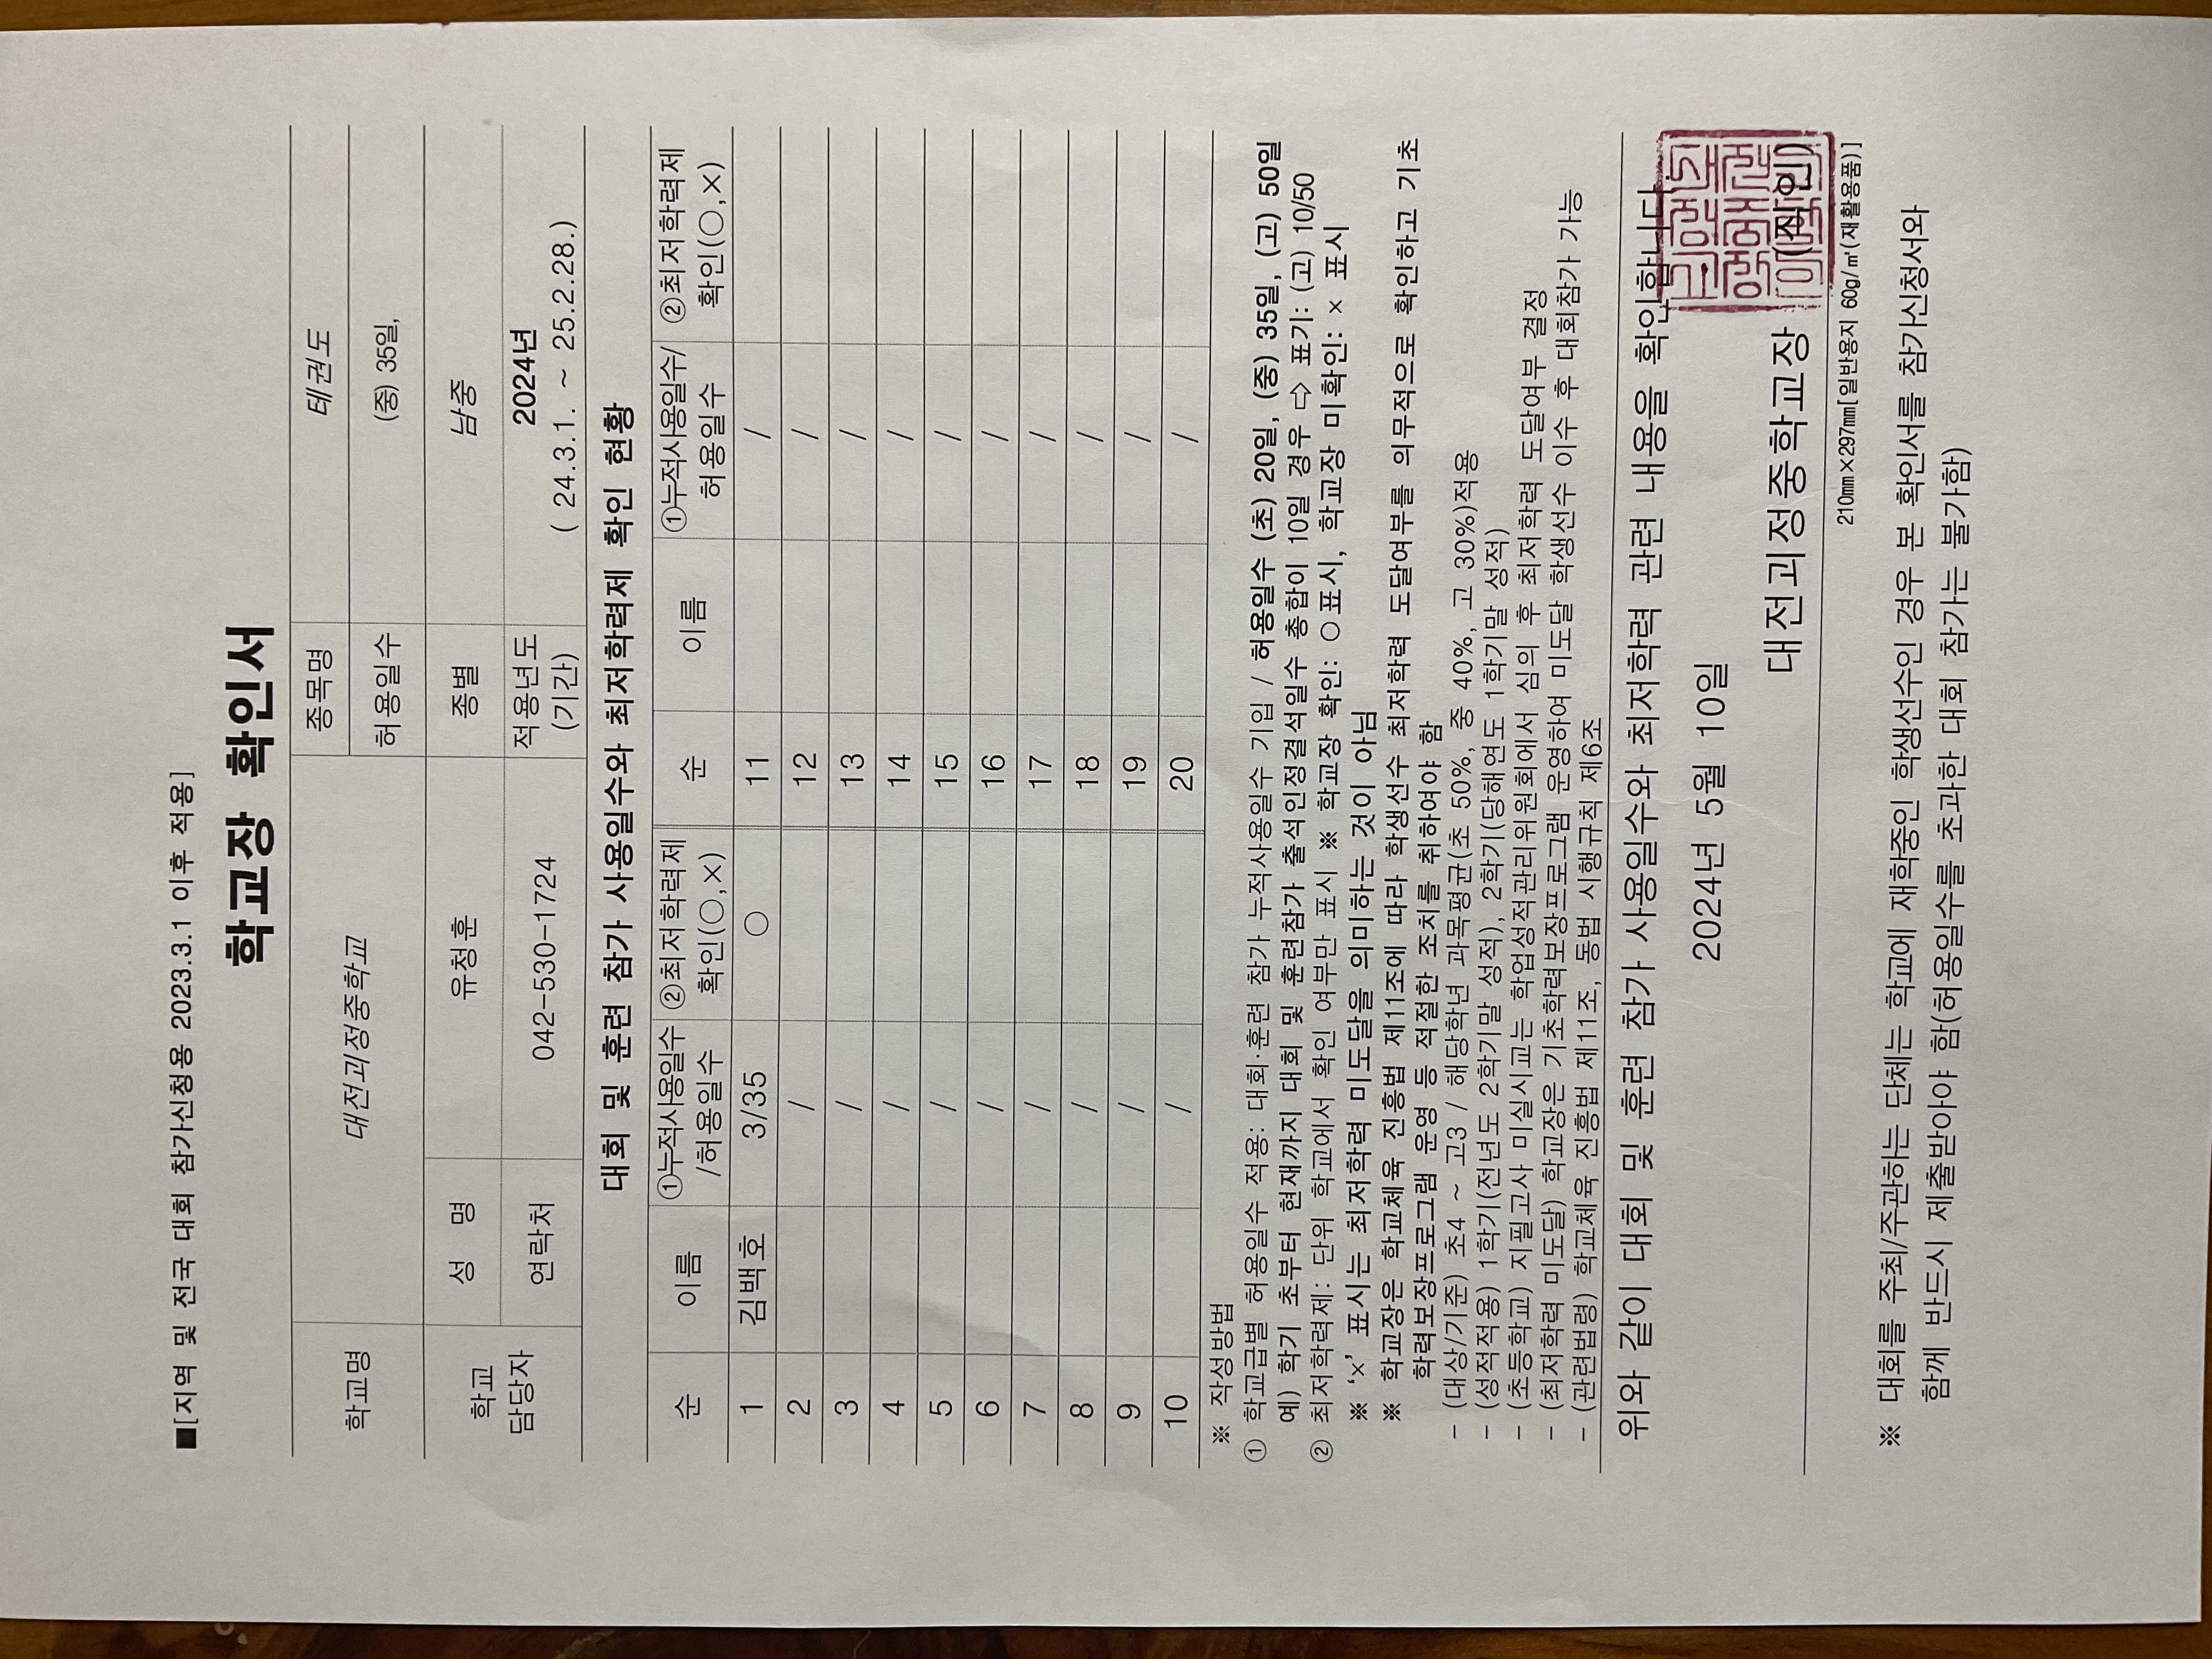 ■[지역 및 전국 대회 참가신청용 2023.3.1 이후 적용]
학교장 확인서
학교명 대전괴정중학교 종목명 테권도
허용일수 (중) 35일,
학교 담당자 성 명 유청훈 종별 남중
연락처 042-530-1724 적용년도 (기간) 2024년
( 24.3.1. ~ 25.2.28.)
대회 및 훈련 참가 사용일수와 최저학력제 확인 현황
순 이름 ①누적사용일수 /허용일수 ②최저학력제 확인(○,×) 순 이름 ①누적사용일수/ 허용일수 ②최저학력제 확인(○,×)
1 김백호 3/35 ○ 11 /
2 / 12 /
3 / 13 /
4 / 14 /
5 / 15 /
6 / 16 /
7 / 17 /
8 / 18 /
9 / 19 /
10 / 20 /
※ 작성방법
① 학교급별 허용일수 적용: 대회·훈련 참가 누적사용일수 기입 / 허용일수 (초) 20일, (중) 35일, (고) 50일
예) 학기 초부터 현재까지 대회 및 훈련참가 출석인정결석일수 총합이 10일 경우 ⇨ 표기: (고) 10/50
② 최저학력제: 단위 학교에서 확인 여부만 표시 ※ 학교장 확인: ○표시, 학교장 미확인: × 표시
※ '×' 표시는 최저학력 미도달을 의미하는 것이 아님
※ 학교장은 학교체육 진흥법 제11조에 따라 학생선수 최저학력 도달여부를 의무적으로 확인하고 기초
학력보장프로그램 운영 등 적절한 조치를 취하여야 함
- (대상/기준) 초4 ~ 고3 / 해당학년 과목평균(초 50%, 중 40%, 고 30%)적용
- (성적적용) 1학기(전년도 2학기말 성적), 2학기(당해연도 1학기말 성적)
- (초등학교) 지필고사 미실시교는 학업성적관리위원회에서 심의 후 최저학력 도달여부 결정
- (최저학력 미도달) 학교장은 기초학력보장프로그램 운영하여 미도달 학생선수 이수 후 대회참가 가능
- (관련법령) 학교체육 진흥법 제11조, 동법 시행규칙 제6조
위와 같이 대회 및 훈련 참가 사용일수와 최저학력 관련 내용을 확인합니다.
2024년 5월 10일
대전괴정중학교장 (직인)
210㎜×297㎜[일반용지 60g/㎡(재활용품)]
※ 대회를 주최/주관하는 단체는 학교에 재학중인 학생선수인 경우 본 확인서를 참가신청서와
함께 반드시 제출받아야 함(허용일수를 초과한 대회 참가는 불가함)